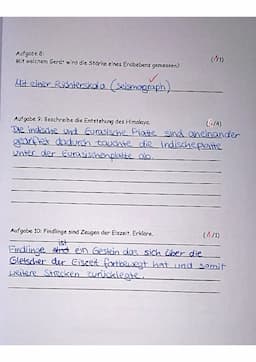 Aufgabe 8: (1/1)
Mit welchem Gerät wird die Stärke eines Erdbebens gemessen?
Mit einer Richterskala (Seismograph)
Aufgabe 9: Beschreibe die Entstehung des Himalaya. (/4)
Die indische und Eurasische Platte sind aneinander
gedriftet dadurch tauchte die Indischeplatte
unter der Eurasischenplatte ab.
Aufgabe 10: Findlinge sind Zeugen der Eiszeit. Erkläre. (1/1)
ist
Findlinge sind ein Gestein das sich über die
Gletscher der Eiszeit fortbewegt hat und somit
weitere Strecken zurücklegte.